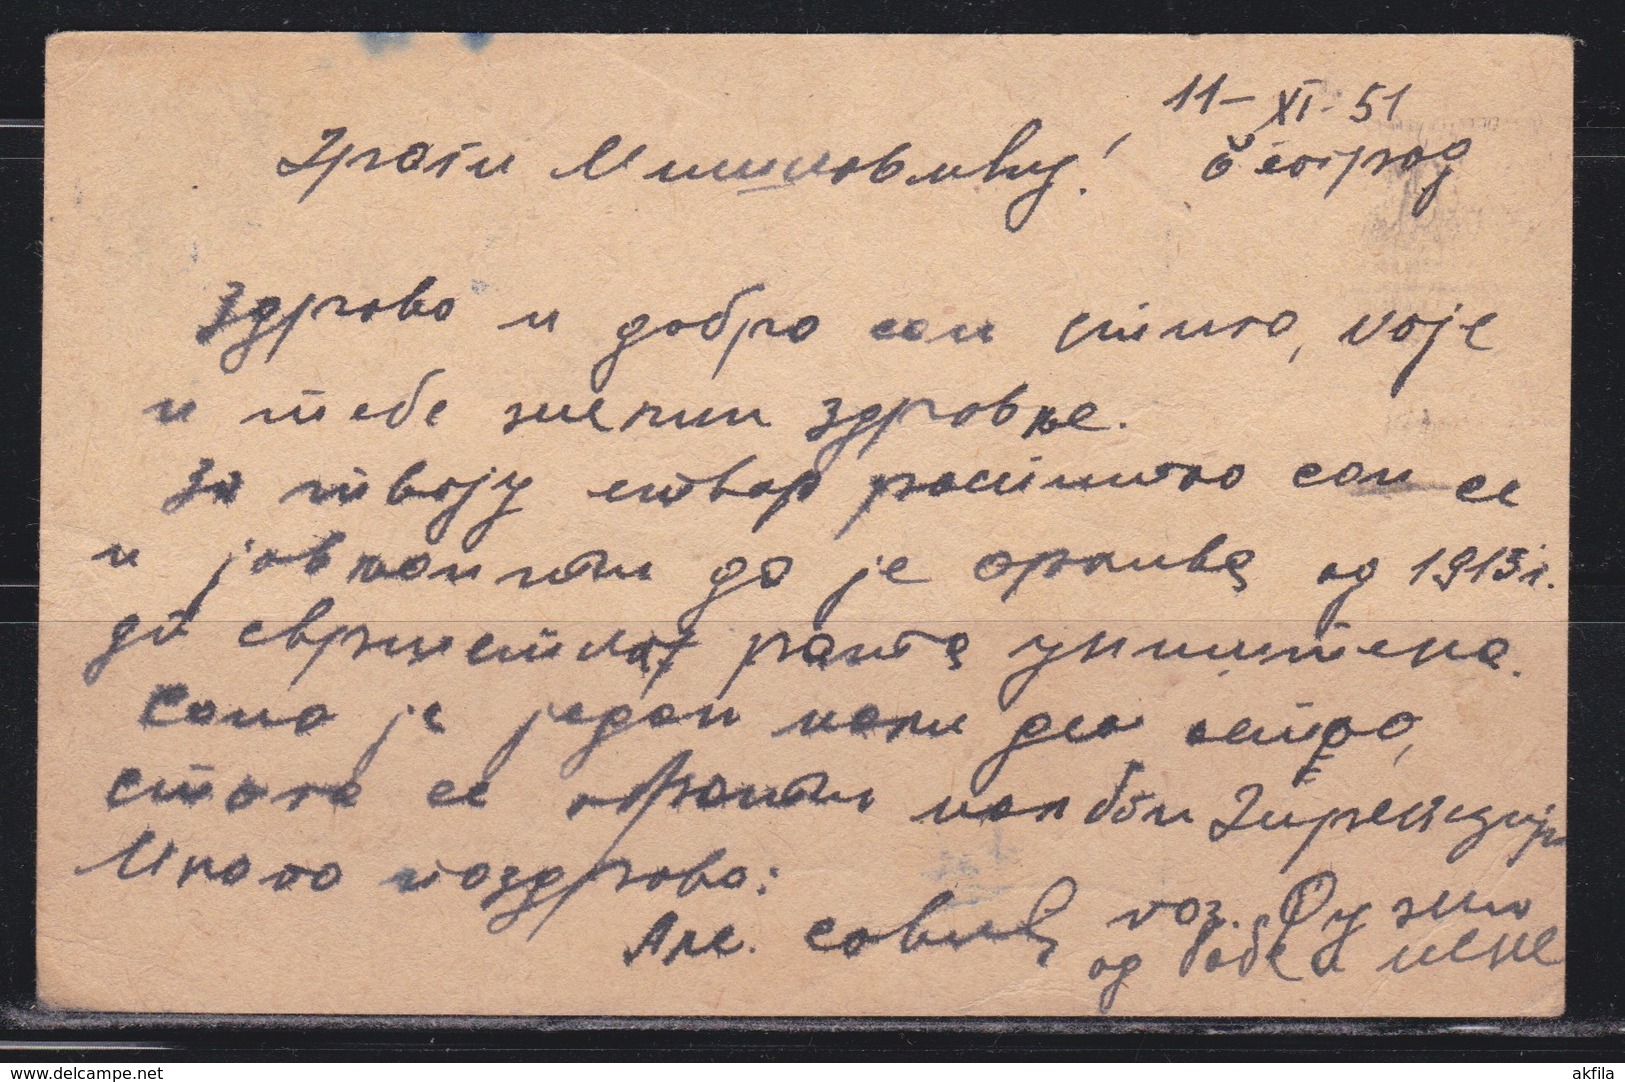 11-XI-51
Драги Мишковићу! Београд
Здраво и добро сам стигао, које
и теби желим здравље.
За твоју ствар распитао сам се
и јавкам ти да је архива од 1915 г.
до свршетка рата уништена.
Само је један мали део остао,
стога се обрати Начелству
Много поздрава:
Але. Совић поз. Фузију
од Бабе и мене
delcampe.net
akfila